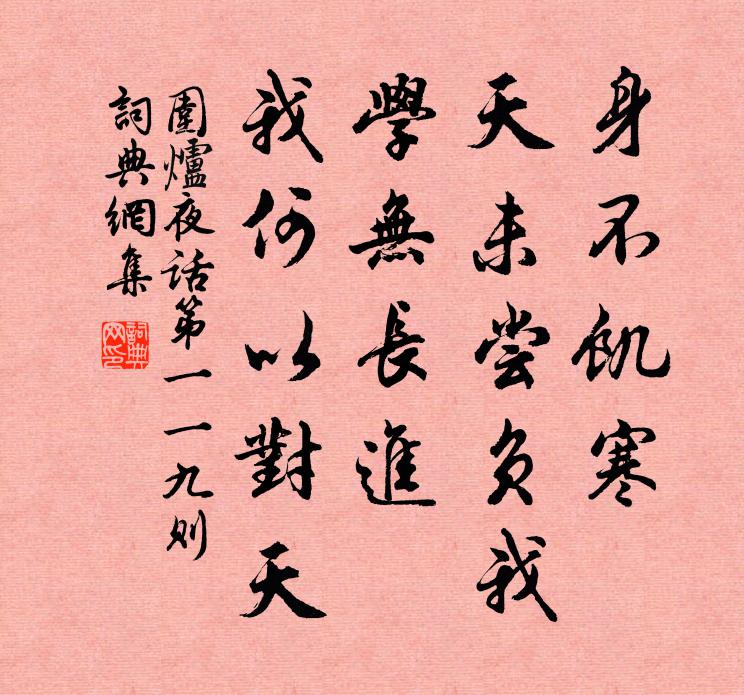 身不飢寒
天未尝负我
學無長進
我何以對天
圍爐夜话第一一九则
詞典網集
詞典网印